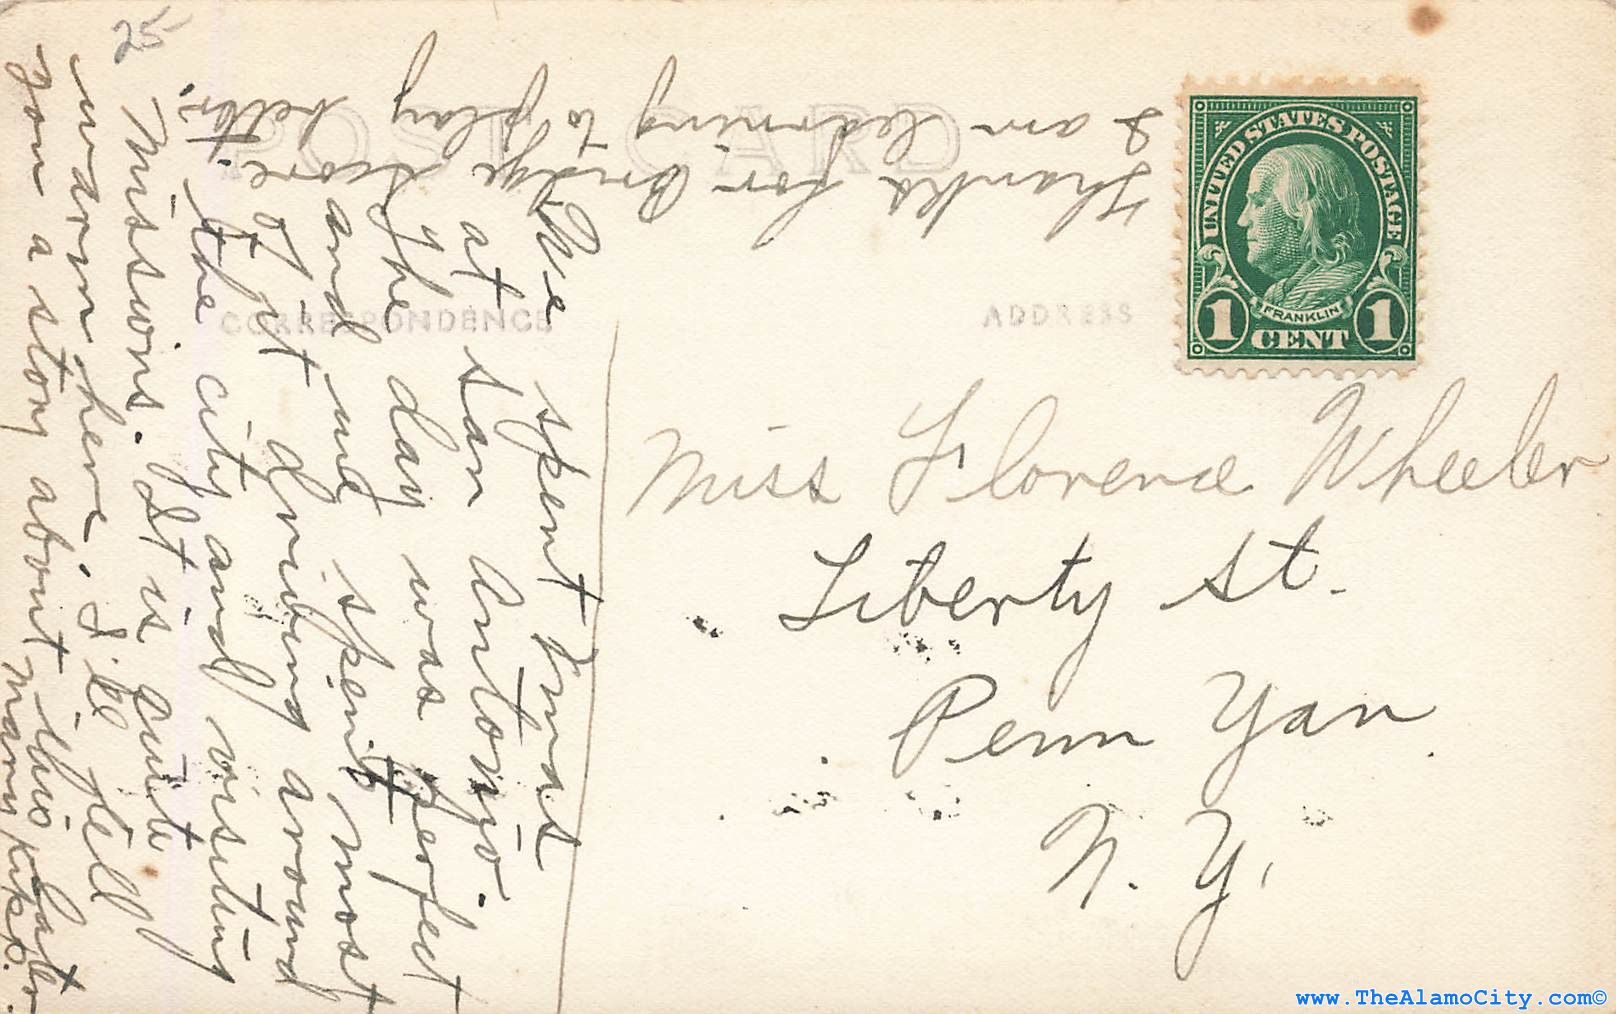 25
POST CARD
CORRESPONDENCE
ADDRESS
UNITED STATES POSTAGE
FRANKLIN
1 CENT 1
Miss Florence Wheeler
Liberty St.
Penn Yan
N. Y.
We spent Xmas
at San Antonio.
The day was perfect
and we spent most
of it driving around
the city and visiting
Missions. It is quite
warm here. I'll tell
you a story about this later
Mary
Thanks for Bridge Score.
I am learning to play better.
www.TheAlamoCity.com©